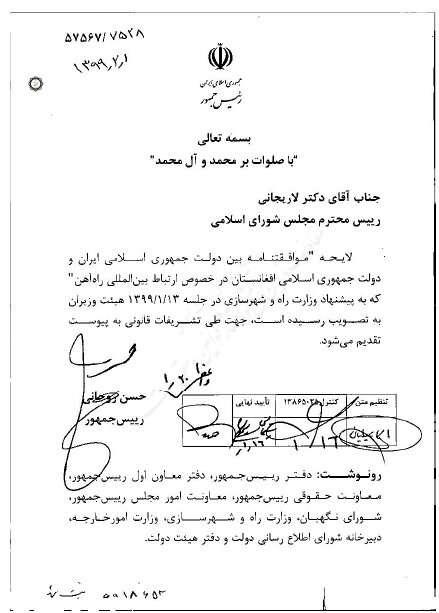 ۵۷۵۶۷/۷۵۲۸
۱۳۹۹,۲,۱
جمهوری اسلامی ایران
رئیس جمهور
بسمه تعالی
"با صلوات بر محمد و آل محمد"
جناب آقای دکتر لاریجانی
رییس محترم مجلس شورای اسلامی
لایحه "موافقتنامه بین دولت جمهوری اسلامی ایران و
دولت جمهوری اسلامی افغانستان در خصوص ارتباط بین‌المللی راه‌آهن"
که به پیشنهاد وزارت راه و شهرسازی در جلسه ۱۳۹۹/۱/۱۳ هیئت وزیران
به تصویب رسیده است، جهت طی تشریفات قانونی به پیوست
تقدیم می‌شود.
حسن روحانی
رییس‌جمهور
تنظیم متن کنترل تأیید نهایی
رونوشت: دفتر رییس‌جمهور، دفتر معاون اول رییس‌جمهور،
معاونت حقوقی رییس‌جمهور، معاونت امور مجلس رییس‌جمهور،
شورای نگهبان، وزارت راه و شهرسازی، وزارت امورخارجه،
دبیرخانه شورای اطلاع رسانی دولت و دفتر هیئت دولت.